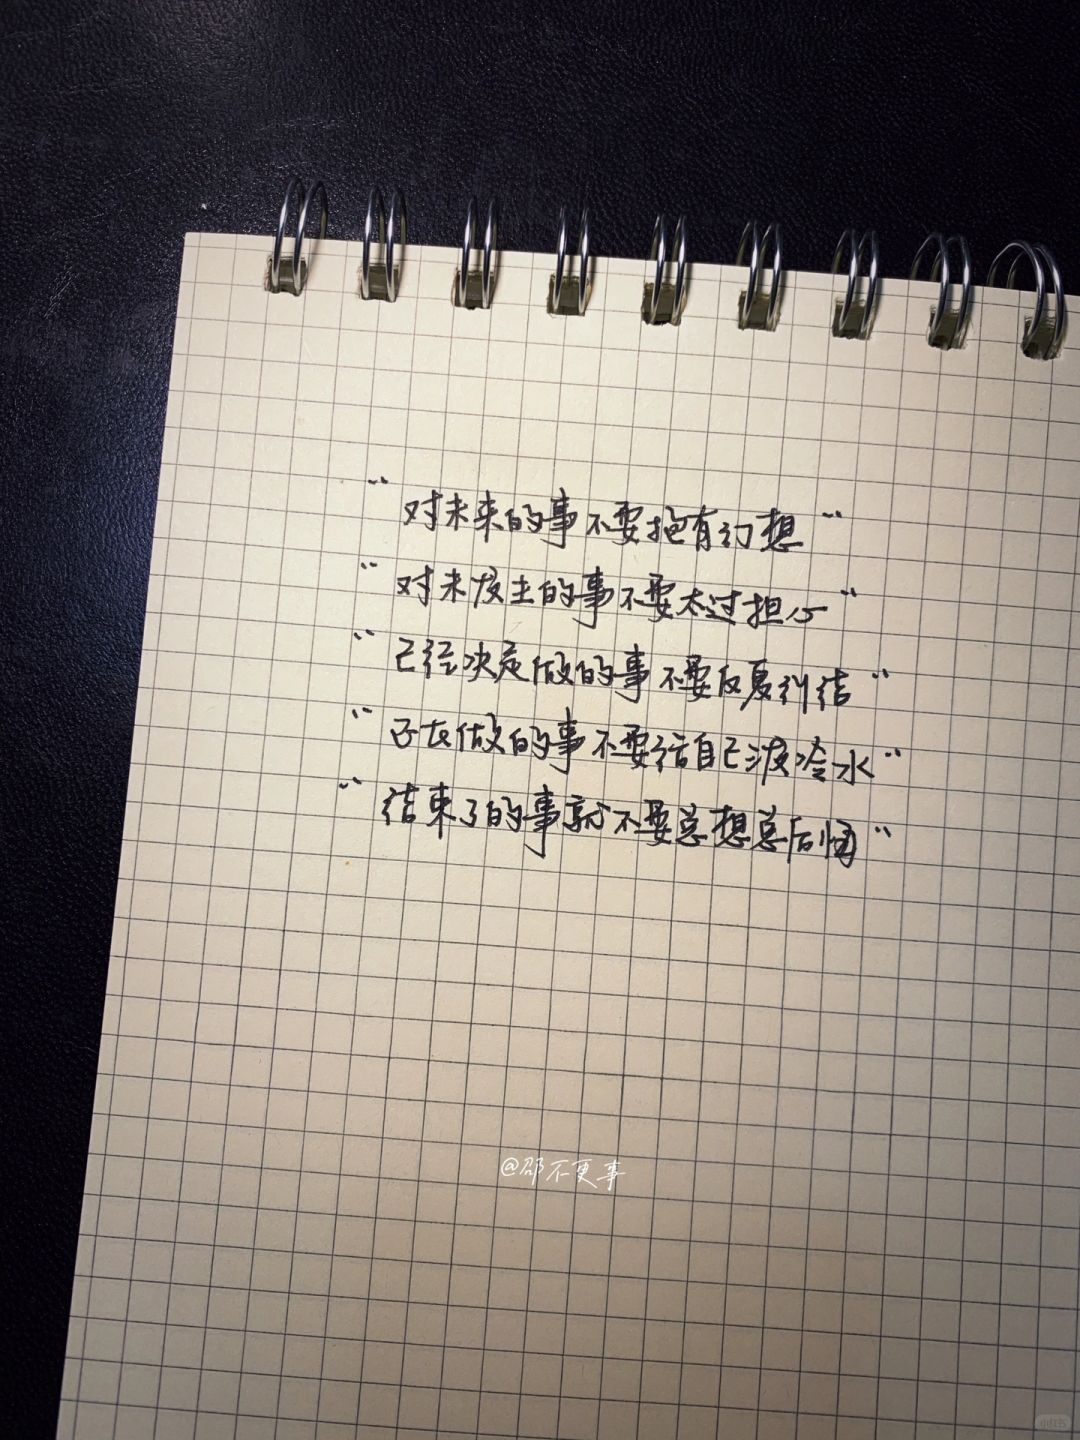 “对未来的事不要抱有幻想”
“对未发生的事不要太过担心”
“已经决定做的事不要反复纠结”
“正在做的事不要给自己泼冷水”
“结束了的事就不要总想总后悔”
@邵不更事
小红书